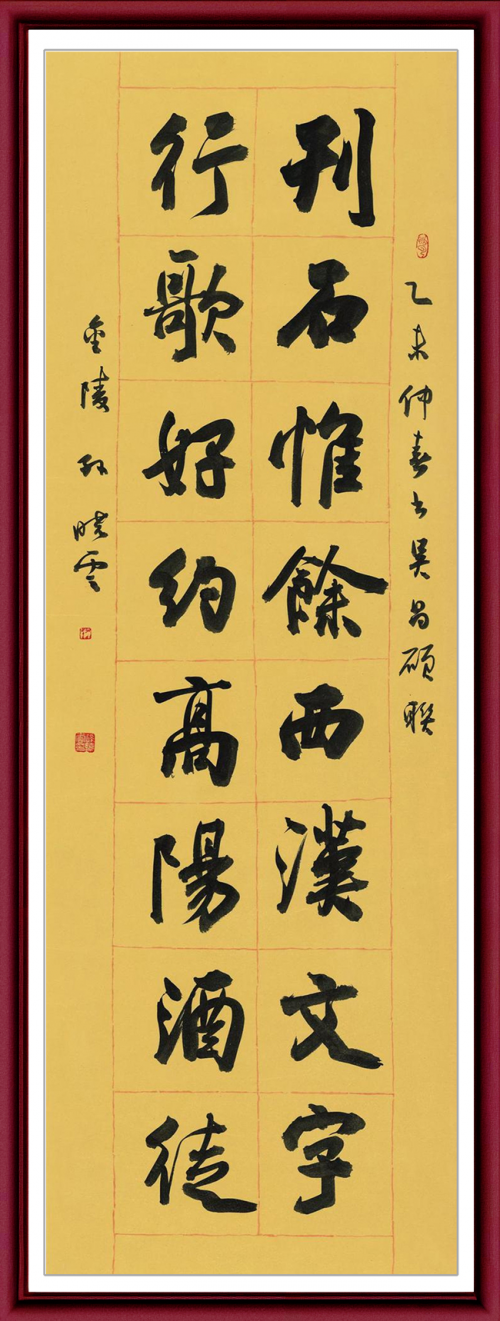 乙未仲春书吳昌碩聯
刊石惟餘西漢文字
行歌好約高陽酒徒
金陵孙晓雲